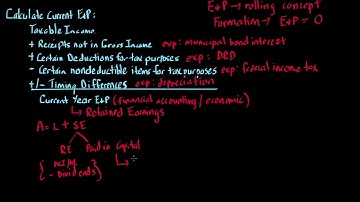 Calculate Current E&P:
E&P → rolling concept
Formation → E&P = 0
Taxable Income
+ Receipts not in Gross Income exp: municipal bond interest
+ Certain Deductions for tax purposes exp: DRD
- Certain nondeductible items for tax purposes exp: federal income tax
+/- Timing Differences exp: depreciation
Current Year E&P (financial accounting / economic)
↳ Retained Earnings
A = L + SE
RE Paid in Capital
{ NI/NL
- Dividends }